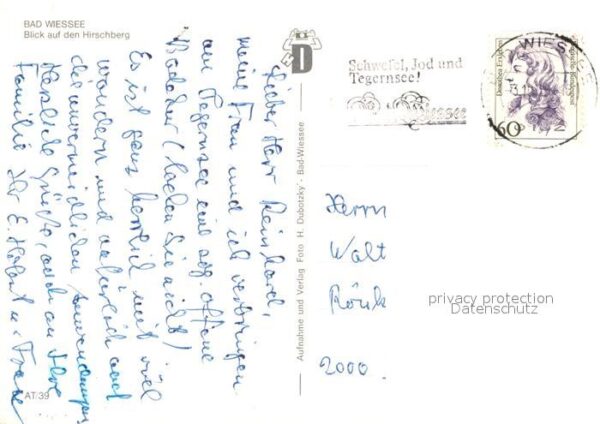 BAD WIESSEE
Blick auf den Hirschberg
Lieber Herr Reinhard,
meine Frau und ich verbringen
am Tegernsee eine sog. offene
Badekur (baden Sie nicht)
Es ist ganz herrlich mit viel
wandern und natürlich auch
den unvermeidlichen
Herzliche Grüße, auch an Ihre
Familie Ihr E. u. Frau
AT/39
Aufnahme und Verlag Foto H. Dubotzky · Bad-Wiessee
D
Schwefel, Jod und
Tegernsee!
WIESSEE
Dorothea Erxleben
Deutsche Bundespost
60
Herrn
Walt
privacy protection
Datenschutz
2000